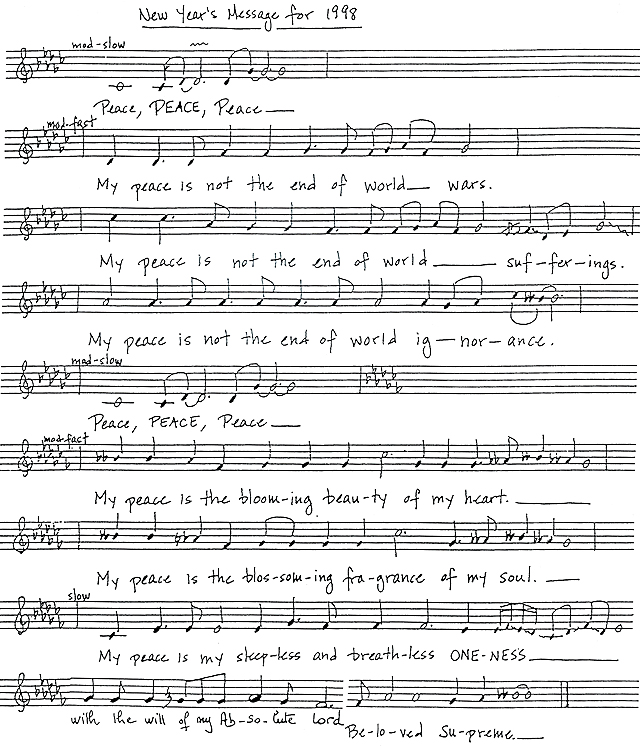 New Year's Message for 1998
mod-slow
Peace, PEACE, Peace—
mod-fast
My peace is not the end of world— wars.
My peace is not the end of world—— suf-fer-ings.
My peace is not the end of world ig-nor-ance.
mod-slow
Peace, PEACE, Peace—
mod-fast
My peace is the bloom-ing beau-ty of my heart.——
My peace is the blos-som-ing fra-grance of my soul.—
slow
My peace is my sleep-less and breath-less ONE-NESS——
with the will of my Ab-so-lute Lord
Be-lo-ved Su-preme.—